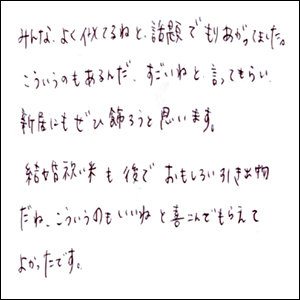 みんな、よく似てるねと、話題でもりあがってました。
こういうのもあるんだ、すごいねと言ってもらい、
新居にもぜひ飾ろうと思います。
結婚祝い米も後でおもしろい引き出物
だね、こういうのもいいねと喜こんでもらえて
よかったです。